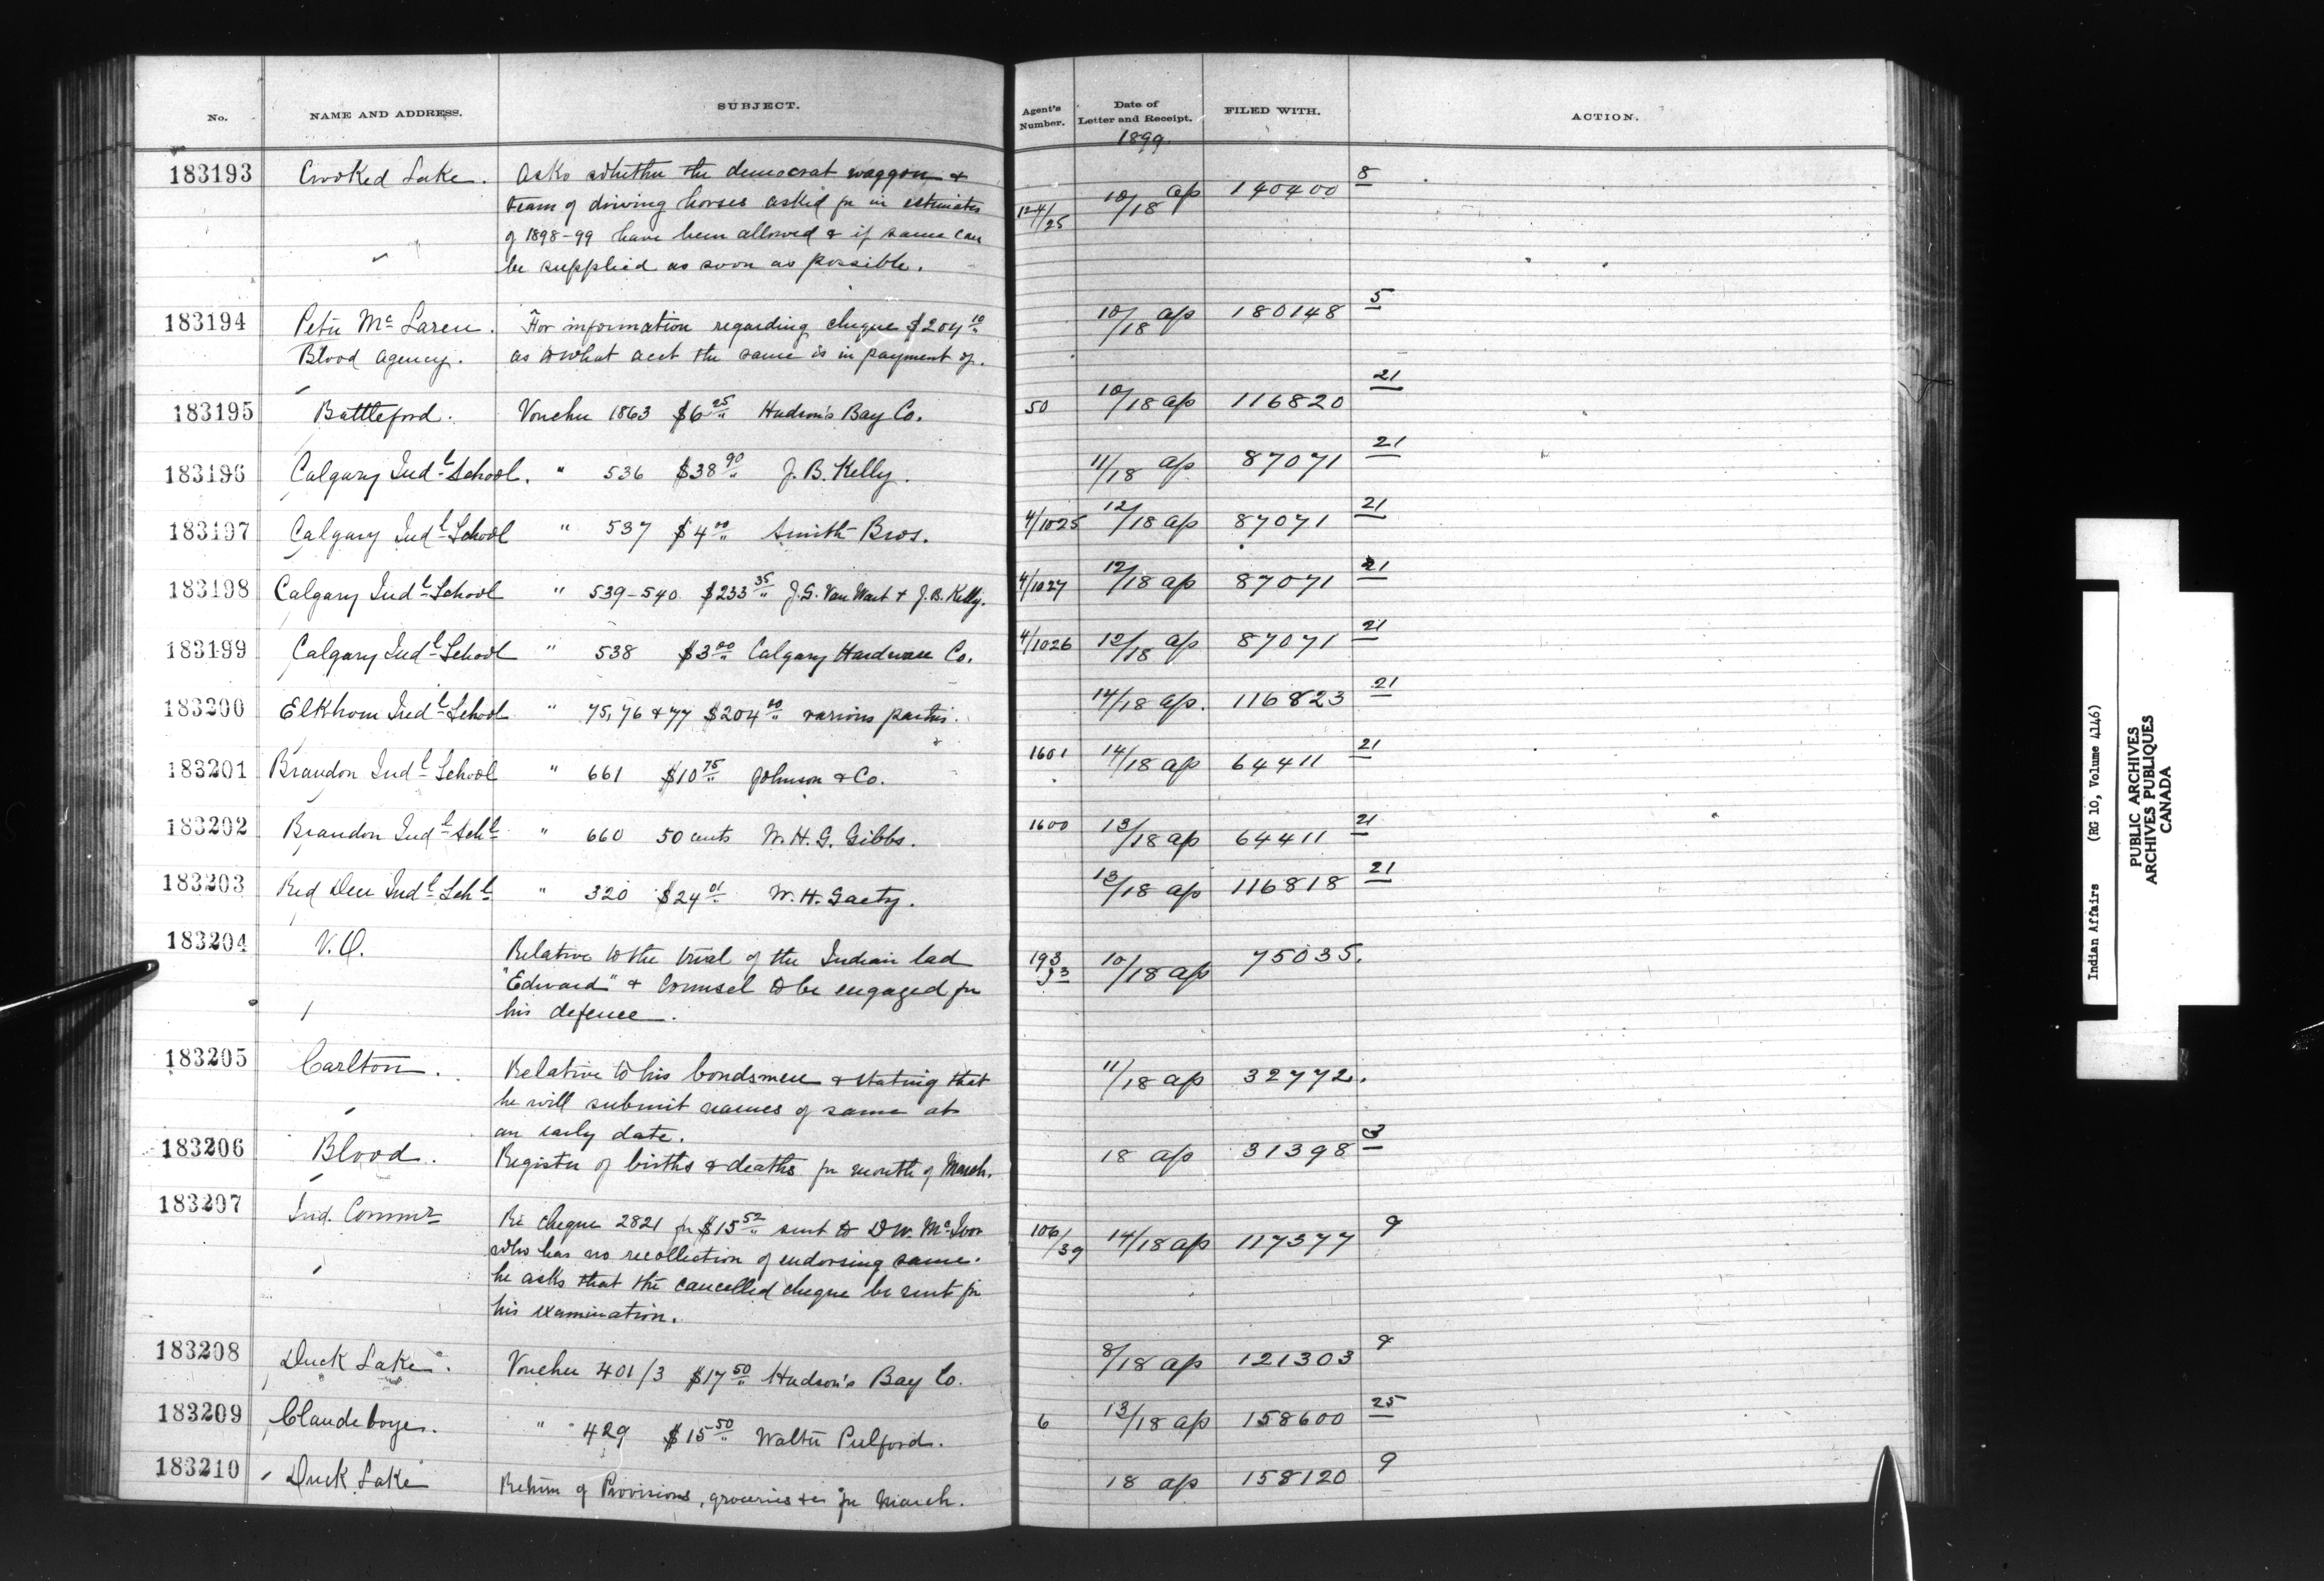 No. NAME AND ADDRESS. SUBJECT. Agent's Number. Date of Letter and Receipt. FILED WITH. ACTION.
1899.
183193 Crooked Lake. Asks whether the democrat waggon & 124/25 10/18 ap 140400 8
team of driving horses asked for in estimates
of 1898-99 have been allowed & if same can
be supplied as soon as possible.
183194 Peter McLaren. For information regarding cheque $204 10 10/18 ap 180148 5
Blood Agency. as to what acct the same is in payment of.
183195 Battleford. Voucher 1863 $6 25 Hudson's Bay Co. 50 10/18 ap 116820 21
183196 Calgary Indl School. " 536 $38 90 J. B. Kelly. 11/18 ap 87071 21
183197 Calgary Indl School " 537 $4 00 Smith Bros. 4/1025 12/18 ap 87071 21
183198 Calgary Indl School " 539-540 $233 35 J. G. Van Wart & J. B. Kelly. 4/1027 12/18 ap 87071 21
183199 Calgary Indl School " 538 $3 00 Calgary Hardware Co. 4/1026 12/18 ap 87071 21
183200 Elkhorn Indl School " 75, 76 & 77 $204 00 various parties. 14/18 ap. 116823 21
183201 Brandon Indl School " 661 $10 75 Johnson & Co. 1601 14/18 ap 64411 21
183202 Brandon Indl Schl " 660 50 cents W. H. G. Gibbs. 1600 13/18 ap 64411 21
183203 Red Deer Indl Schl " 320 $24 01 W. H. Gaety. 13/18 ap 116818 21
183204 V. O. Relative to the trial of the Indian lad 193 10/18 ap 75035.
"Edward" & Counsel to be engaged for
his defence.
183205 Carlton. Relative to his bondsmen & stating that 11/18 ap 32772.
he will submit names of same at
an early date.
183206 Blood. Register of births & deaths for month of March. 18 ap 31398 3
183207 Ind. Commr Re cheque 2821 for $15 52 sent to D W. McIvor 106/39 14/18 ap 117377 9
who has no recollection of endorsing same.
he asks that the cancelled cheque be sent for
his examination.
183208 Duck Lake. Voucher 401/3 $17 50 Hudson's Bay Co. 8/18 ap 121303 9
183209 Clandeboye. " 429 $15 50 Walter Pulford. 6 13/18 ap 158600 25
183210 Duck Lake Return of Provisions, groceries &c for March. 18 ap 158120 9
Indian Affairs (RG 10, Volume 4146)
PUBLIC ARCHIVES
ARCHIVES PUBLIQUES
CANADA